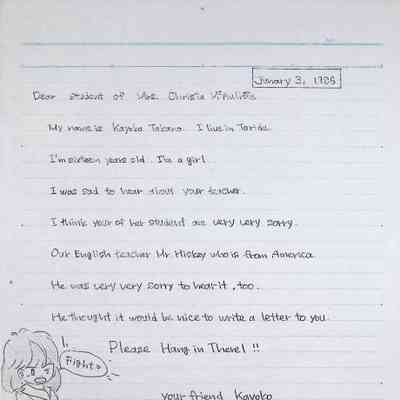 January 3, 1986
Dear student of Mrs. Christa McAuliffe
My name is Kayoko Takano. I live in Toride.
I'm sixteen years old. I'm a girl.
I was sad to hear about your teacher.
I think your of her student are very very sorry.
Our English teacher Mr. Hickey who is from America.
He was very very sorry to hear it, too.
He thought it would be nice to write a letter to you.
Please Hang in There! !!
Fight
your friend Kayoko